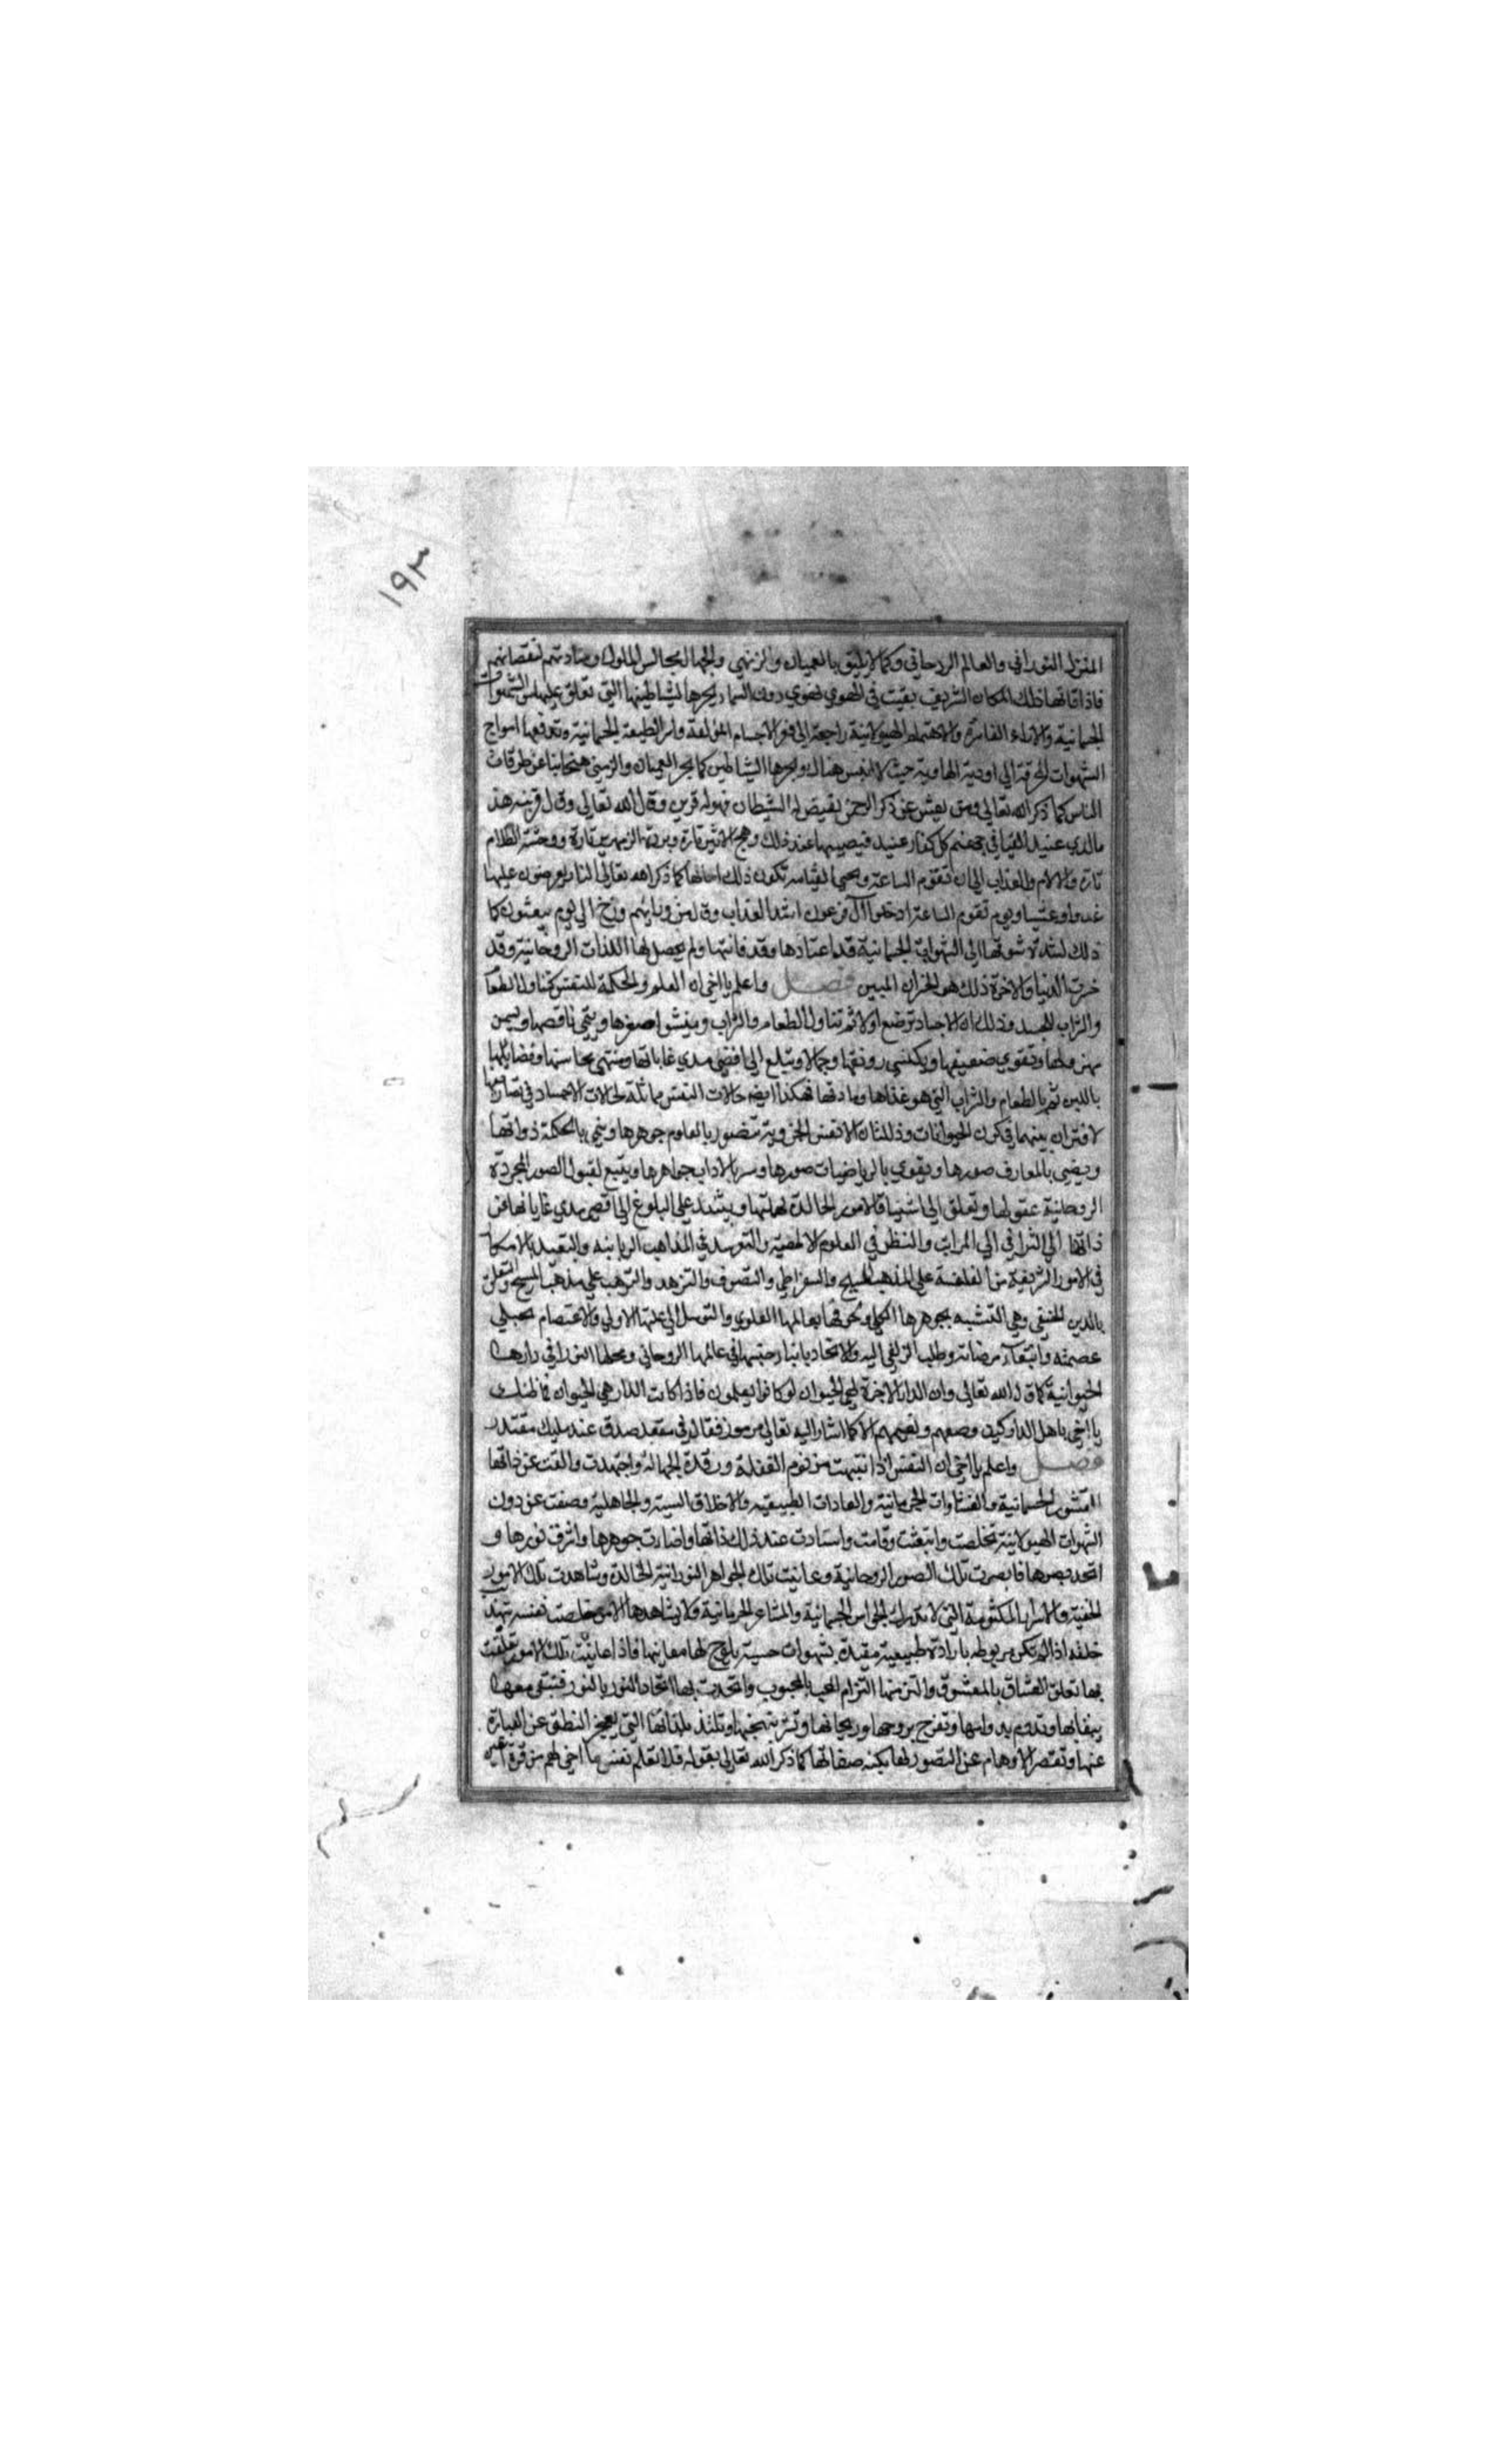 ١٩٣
المنزل النوراني والعالم الروحاني وكما لا يليق بالعميان والزمني والجهال مجالس الملوك ومنادمتهم لنقصانهم
فاذا فاتها ذلك المكان الشريف بقيت في الهوي تهوي دون السماء ويجرها شياطينها التي تعلق عليها من الشهوات
الجسمانية والاراء الفاسدة والاهتمام الهيولانية راجعة الى قعر الاجسام المؤلفة واسر الطبيعة الجسمانية وتدفعها امواج
الشهوات المحرقة الي اودية الهاوية حيث لا انيس هناك ويجرها الشياطين كما يجر العميان والزمني متجانبا عن طرقات
الناس كما ذكر الله تعالى ومن يعش عن ذكر الرحمن نقيض له الشيطان فهو له قرين وقال الله تعالى وقال قرينه هذا
مالدي عتيد القيا في جهنم كل كفار عنيد فيصيبها عند ذلك وهج الاثير تارة وبرد الزمهرير تارة ووحشة الظلام
تارة والالام والعذاب الى ان تقوم الساعة تكون ذلك حالها كما ذكر الله تعالى النار يعرضون عليها
غدوا وعشيا ويوم تقوم الساعة ادخلوا آل فرعون اشد العذاب وقال من ورائهم برزخ الى يوم يبعثون كل
ذلك لشدة شوقها الى الشهوات الجسمانية قد اعتادها وقد فاتتها ولم يحصل لها اللذات الروحانية وقد
خسرت الدنيا والاخرة ذلك هو الخسران المبين فصل واعلم يا اخي ان العلم والحكمة للنفس كتناول الطعام
والشراب للجسد وذلك ان الاجساد ترضع اولا ثم تناول الطعام والشراب وينشوا صغرها وينمي ناقصها ويسمن
مهزولها وتقوي ضعيفها ويكتسي رونقها وجمالا ويبلغ الى اقصى مدي غاياتها ومنتهى محاسنها وفضايلها
باللبن ثم بالطعام والشراب التي هو غذاها ومادتها فهكذا ايضا حالات النفس مماثلة لحالات الاجساد في تصاريفها
لاقتران بينهما في كون الحيوانات وذلك ان الانفس الجزوية تتصور بالعلوم جوهرها وينمي بالحكمة ذواتها
ويضيي بالمعارف صورها ويقوي بالرياضيات صورها بالاداب جواهرها ويتسع لقبول الصور المجردة
الروحانية عقولها وتعلق الى اشتياق الامور الخالدة همتها ويشتد على البلوغ الى اقصى مدي غاياتها من
ذاتها الى الترافي الي المراتب والنظر في العلوم الالهية في المذاهب الربانية والتعبد بالامكان
في الامور الشريفة من الفلسفة على المذهب والسقراطي والتصوف والتزهد والترهب علي مذهب المسيح والتعلق
بالدين الحنيفي وهي التشبه بجوهرها الكلي ولحوقها بعالمها العلوي والتوسل الي علتها الاولي والاعتصام بحبل
عصمته وابتغاء مرضاته وطلب الزلفي اليه والاتحاد بابناء جنسها في عالمها الروحاني ومحلها النوراني دارها
الحيوانية كما قال الله تعالى وان الدار الاخرة لهي الحيوان لو كانوا يعلمون فاذا كانت الدار هي الحيوان فما ظنك
يا اخي باهل الدار كيف وصفهم ونعيمهم الا كما اشار اليه تعالى مرموز فقال في مقعد صدق عند مليك مقتدر
فصل واعلم يا اخي ان النفس اذا انتبهت من نوم الغفلة ورقدة الجهالة واجتهدت والقت عن ذاتها
القشور الجسمانية والغشاوات الجرمانية والعادات الطبيعية والاخلاق السية والجاهلية وصفت عن درن
الشهوات الهيولانية تخلصت وانبعثت وقامت واستنارت عند ذلك ذاتها واضاءت جوهرها واشرق نورها و
احتد بصرها فابصرت تلك الصور الروحانية وعاينت تلك الجواهر النورانية الخالدة وشاهدت تلك الامور
الخفية والاسرار المكتومة التي لا تدرك بالحواس الجسمانية والمشاعر الجرمانية ولا يشاهدها الا من خلصت نفسه بتهذيب
خلقه اذا لم تكن مربوطه بارادة طبيعية مقيدة بشهوات حسية يلوح لها معانيها فاذا عاينت تلك الامور تعلقت
بها تعلق العشاق بالمعشوق والتزمتها التزام المحب بالمحبوب واتحدت بها اتحاد النور بالنور فتبقى معها
ببقائها وتدوم بدوامها وتفرح بروحها وريحانها وتلتذ بلذاتها التي يعجز النطق عن العبارة
عنها وتقصر الاوهام عن التصور لها بكنه صفاتها كما ذكر الله تعالى بقوله فلا تعلم نفس ما اخفي لهم من قرة اعين